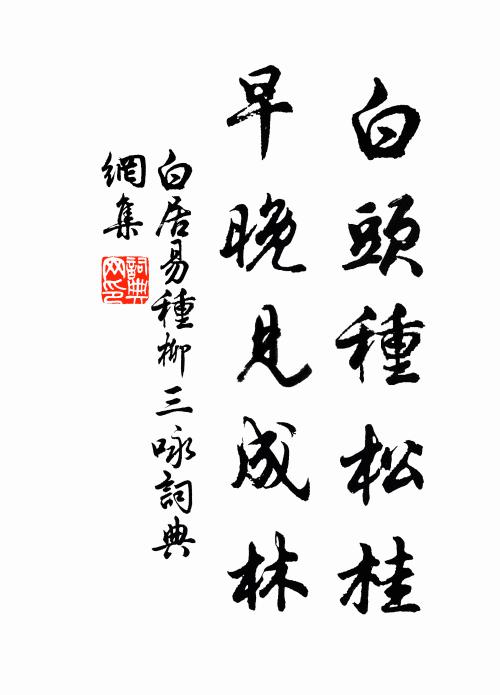 白頭種松桂
早晚見成林
白居易種柳三咏詞典
網集
詞典
网印